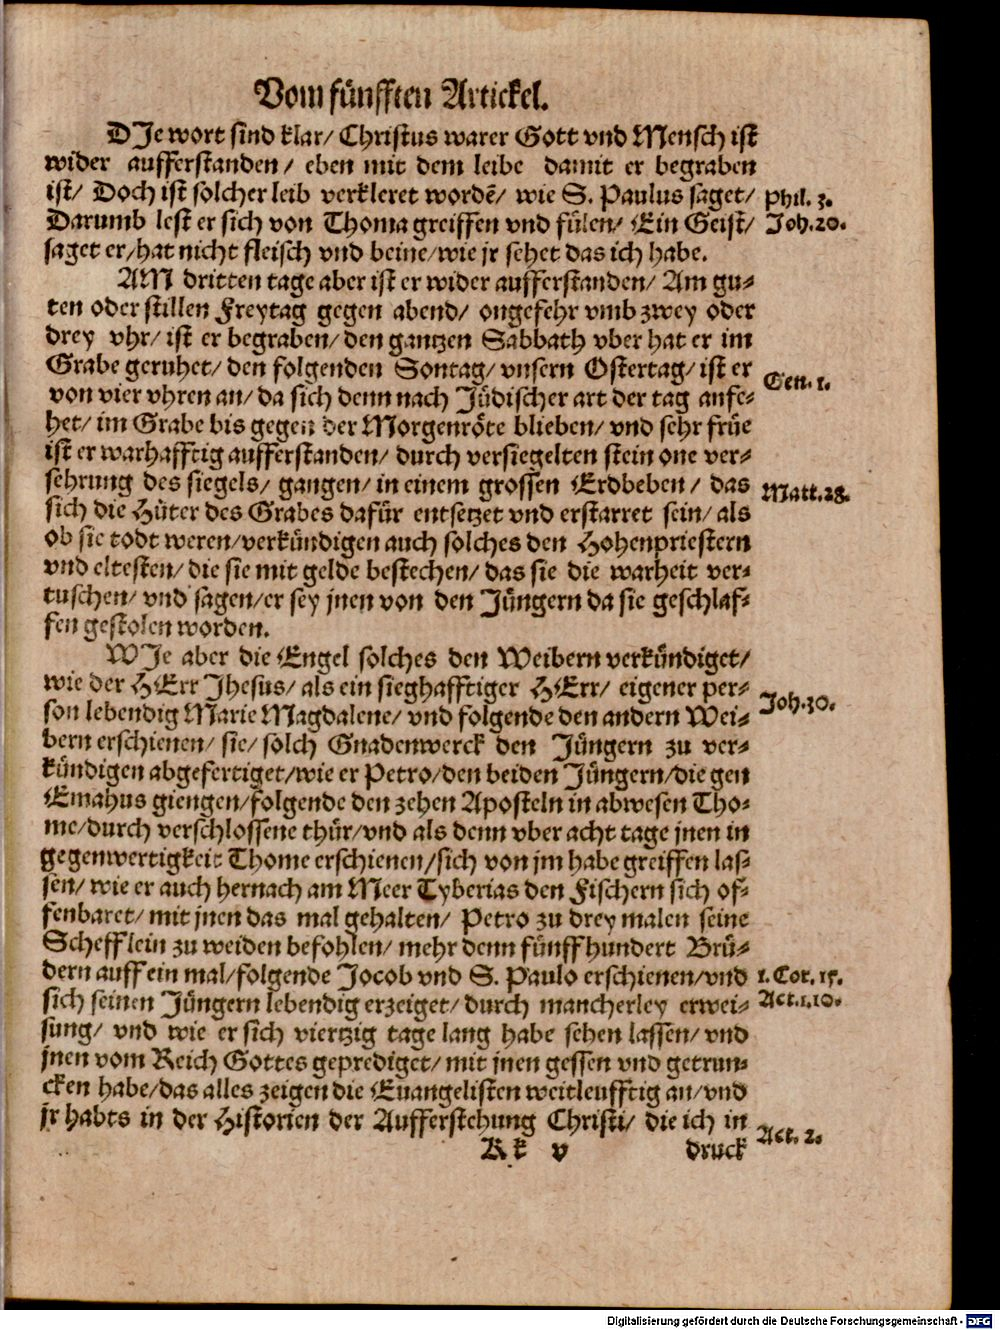 Vom fünfften Artickel.
DJe wort sind klar/ Christus warer Gott vnd Mensch ist
wider aufferstanden/ eben mit dem leibe damit er begraben
ist/ Doch ist solcher leib verkleret wordẽ/ wie S. Paulus saget/ Phil. 3.
Darumb lest er sich von Thoma greiffen vnd fülen/ Ein Geist/ Joh. 20.
saget er/ hat nicht fleisch vnd beine/ wie jr sehet das ich habe.
AM dritten tage aber ist er wider aufferstanden/ Am gu-
ten oder stillen Freytag gegen abend/ ongefehr vmb zwey oder
drey vhr/ ist er begraben/ den gantzen Sabbath vber hat er im
Grabe geruhet/ den folgenden Sontag/ vnsern Ostertag/ ist er
von vier vhren an/ da sich denn nach Jüdischer art der tag anfe- Gen. 1.
het/ im Grabe bis gegen der Morgenröte blieben/ vnd sehr früe
ist er warhafftig aufferstanden/ durch versiegelten stein one ver-
sehrung des siegels/ gangen/ in einem grossen Erdbeben/ das Matt. 28.
sich die Hüter des Grabes dafür entsetzet vnd erstarret sein/ als
ob sie todt weren/ verkündigen auch solches den Hohenpriestern
vnd eltesten/ die sie mit gelde bestechen/ das sie die warheit ver-
tuschen/ vnd sagen/ er sey jnen von den Jüngern da sie geschlaf-
fen gestolen worden.
WJe aber die Engel solches den Weibern verkündiget/
wie der HErr Jhesus/ als ein sieghafftiger HErr/ eigener per- Joh. 30.
son lebendig Marie Magdalene/ vnd folgende den andern Wei-
bern erschienen/ sie/ solch Gnadenwerck den Jüngern zu ver-
kündigen abgefertiget/ wie er Petro/ den beiden Jüngern/ die gen
Emahus giengen/ folgende den zehen Aposteln in abwesen Tho-
me/ durch verschlossene thür/ vnd als denn vber acht tage jnen in
gegenwertigkeit Thome erschienen/ sich von jm habe greiffen las-
sen/ wie er auch hernach am Meer Tyberias den Fischern sich of-
fenbaret/ mit jnen das mal gehalten/ Petro zu drey malen seine
Schefflein zu weiden befohlen/ mehr denn fünffhundert Brü-
dern auff ein mal/ folgende Jocob vnd S. Paulo erschienen/ vnd 1. Cor. 15.
sich seinen Jüngern lebendig erzeiget/ durch mancherley erwei- Act. 1.10.
sung/ vnd wie er sich viertzig tage lang habe sehen lassen/ vnd
jnen vom Reich Gottes geprediget/ mit jnen gessen vnd getrun-
cken habe/ das alles zeigen die Euangelisten weitleufftig an/ vnd
jr habts in der Historien der Aufferstehung Christi/ die ich in Act. 2.
Kk v druck
Digitalisierung gefördert durch die Deutsche Forschungsgemeinschaft - DFG